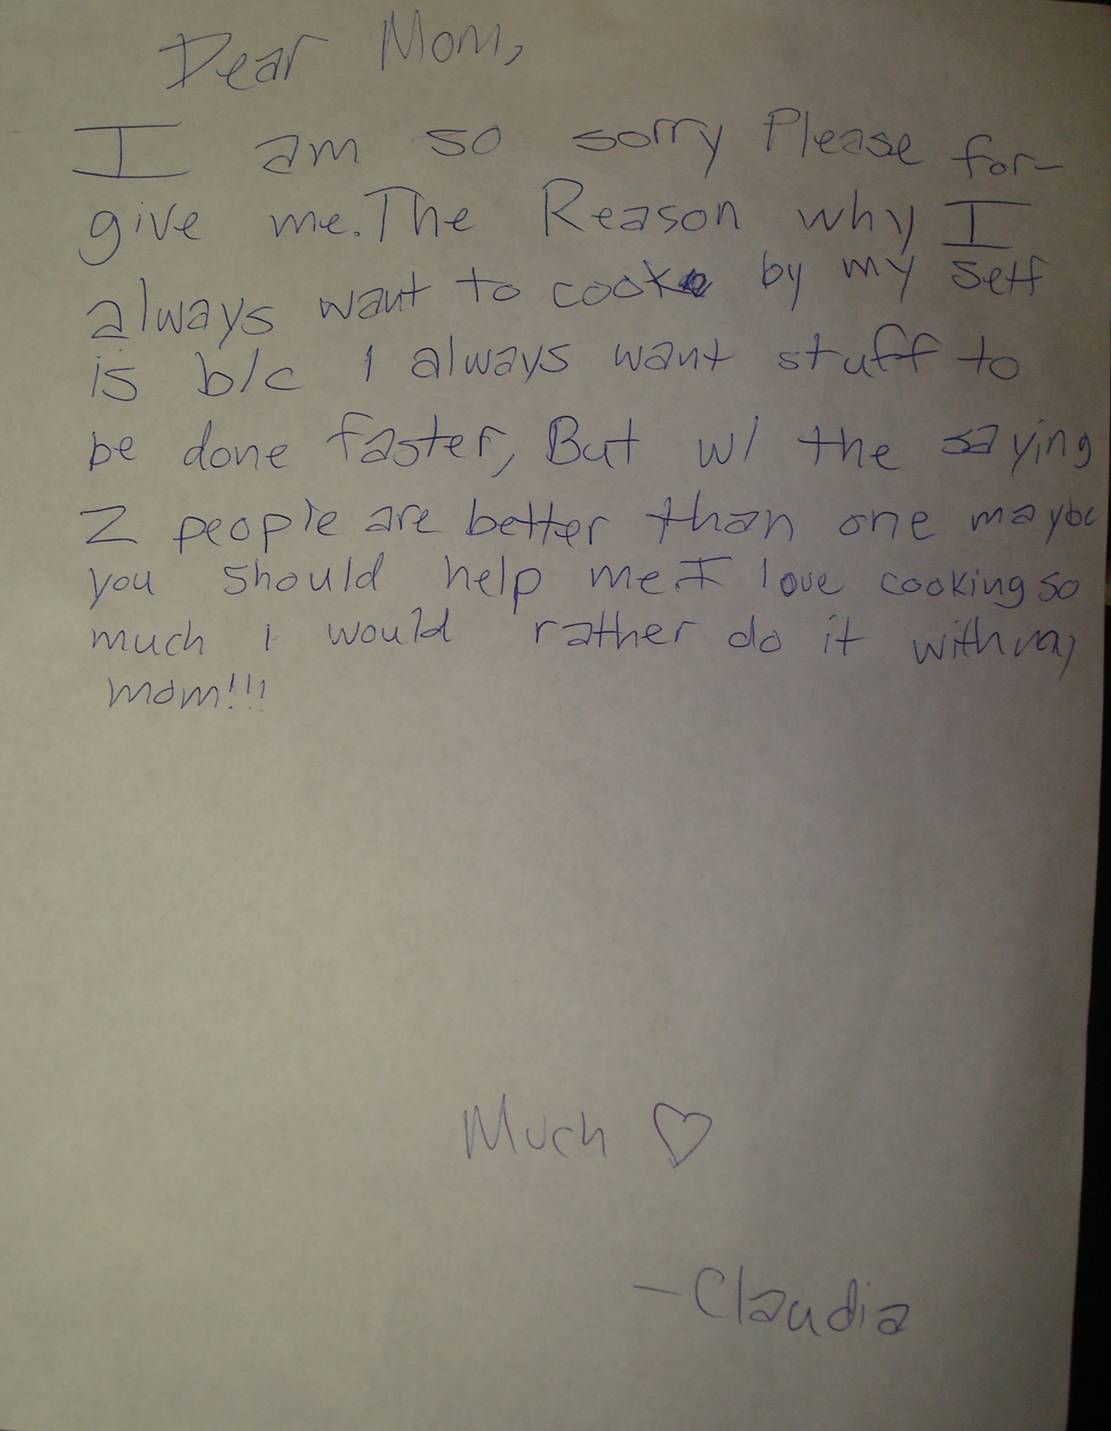 Dear Mom,
I am so sorry Please for-
give me. The Reason why I
always want to cook by my self
is b/c I always want stuff to
be done faster, But w/ the saying
2 people are better than one maybe
you should help me. I love cooking so
much i would rather do it with my
mom!!!
Much ♡
- Claudia